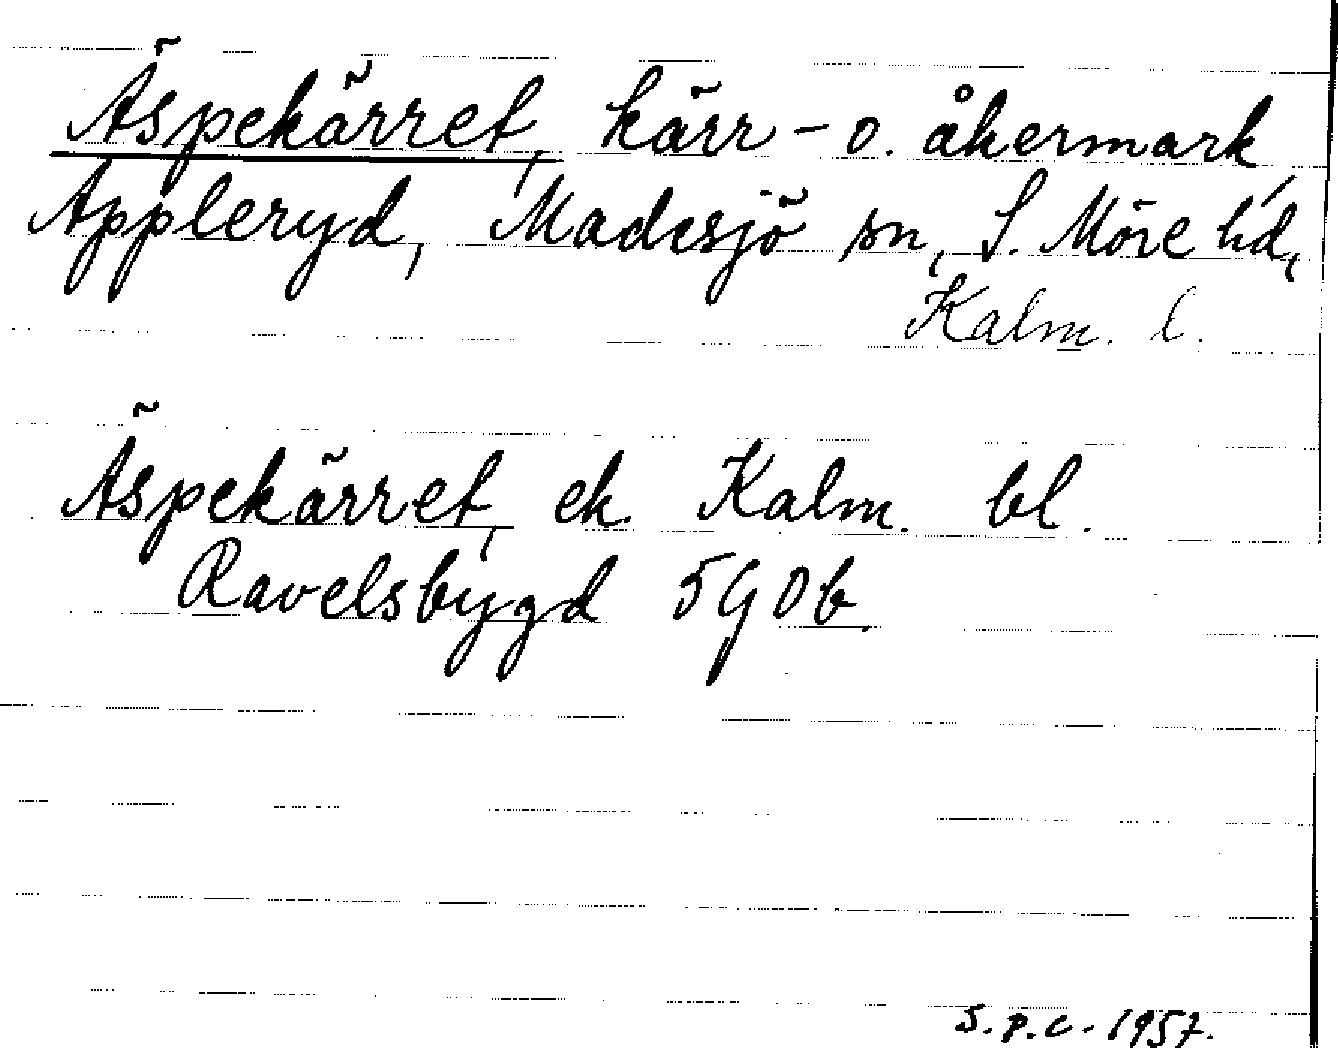 Äspekärret, kärr- o. åkermark,
Appleryd, Madesjö sn, S. Möre hd,
Kalm. l.
Äspekärret, ek. Kalm. bl.
Ravelsbygd 5 G 0 b.
S.P.C. 1957.